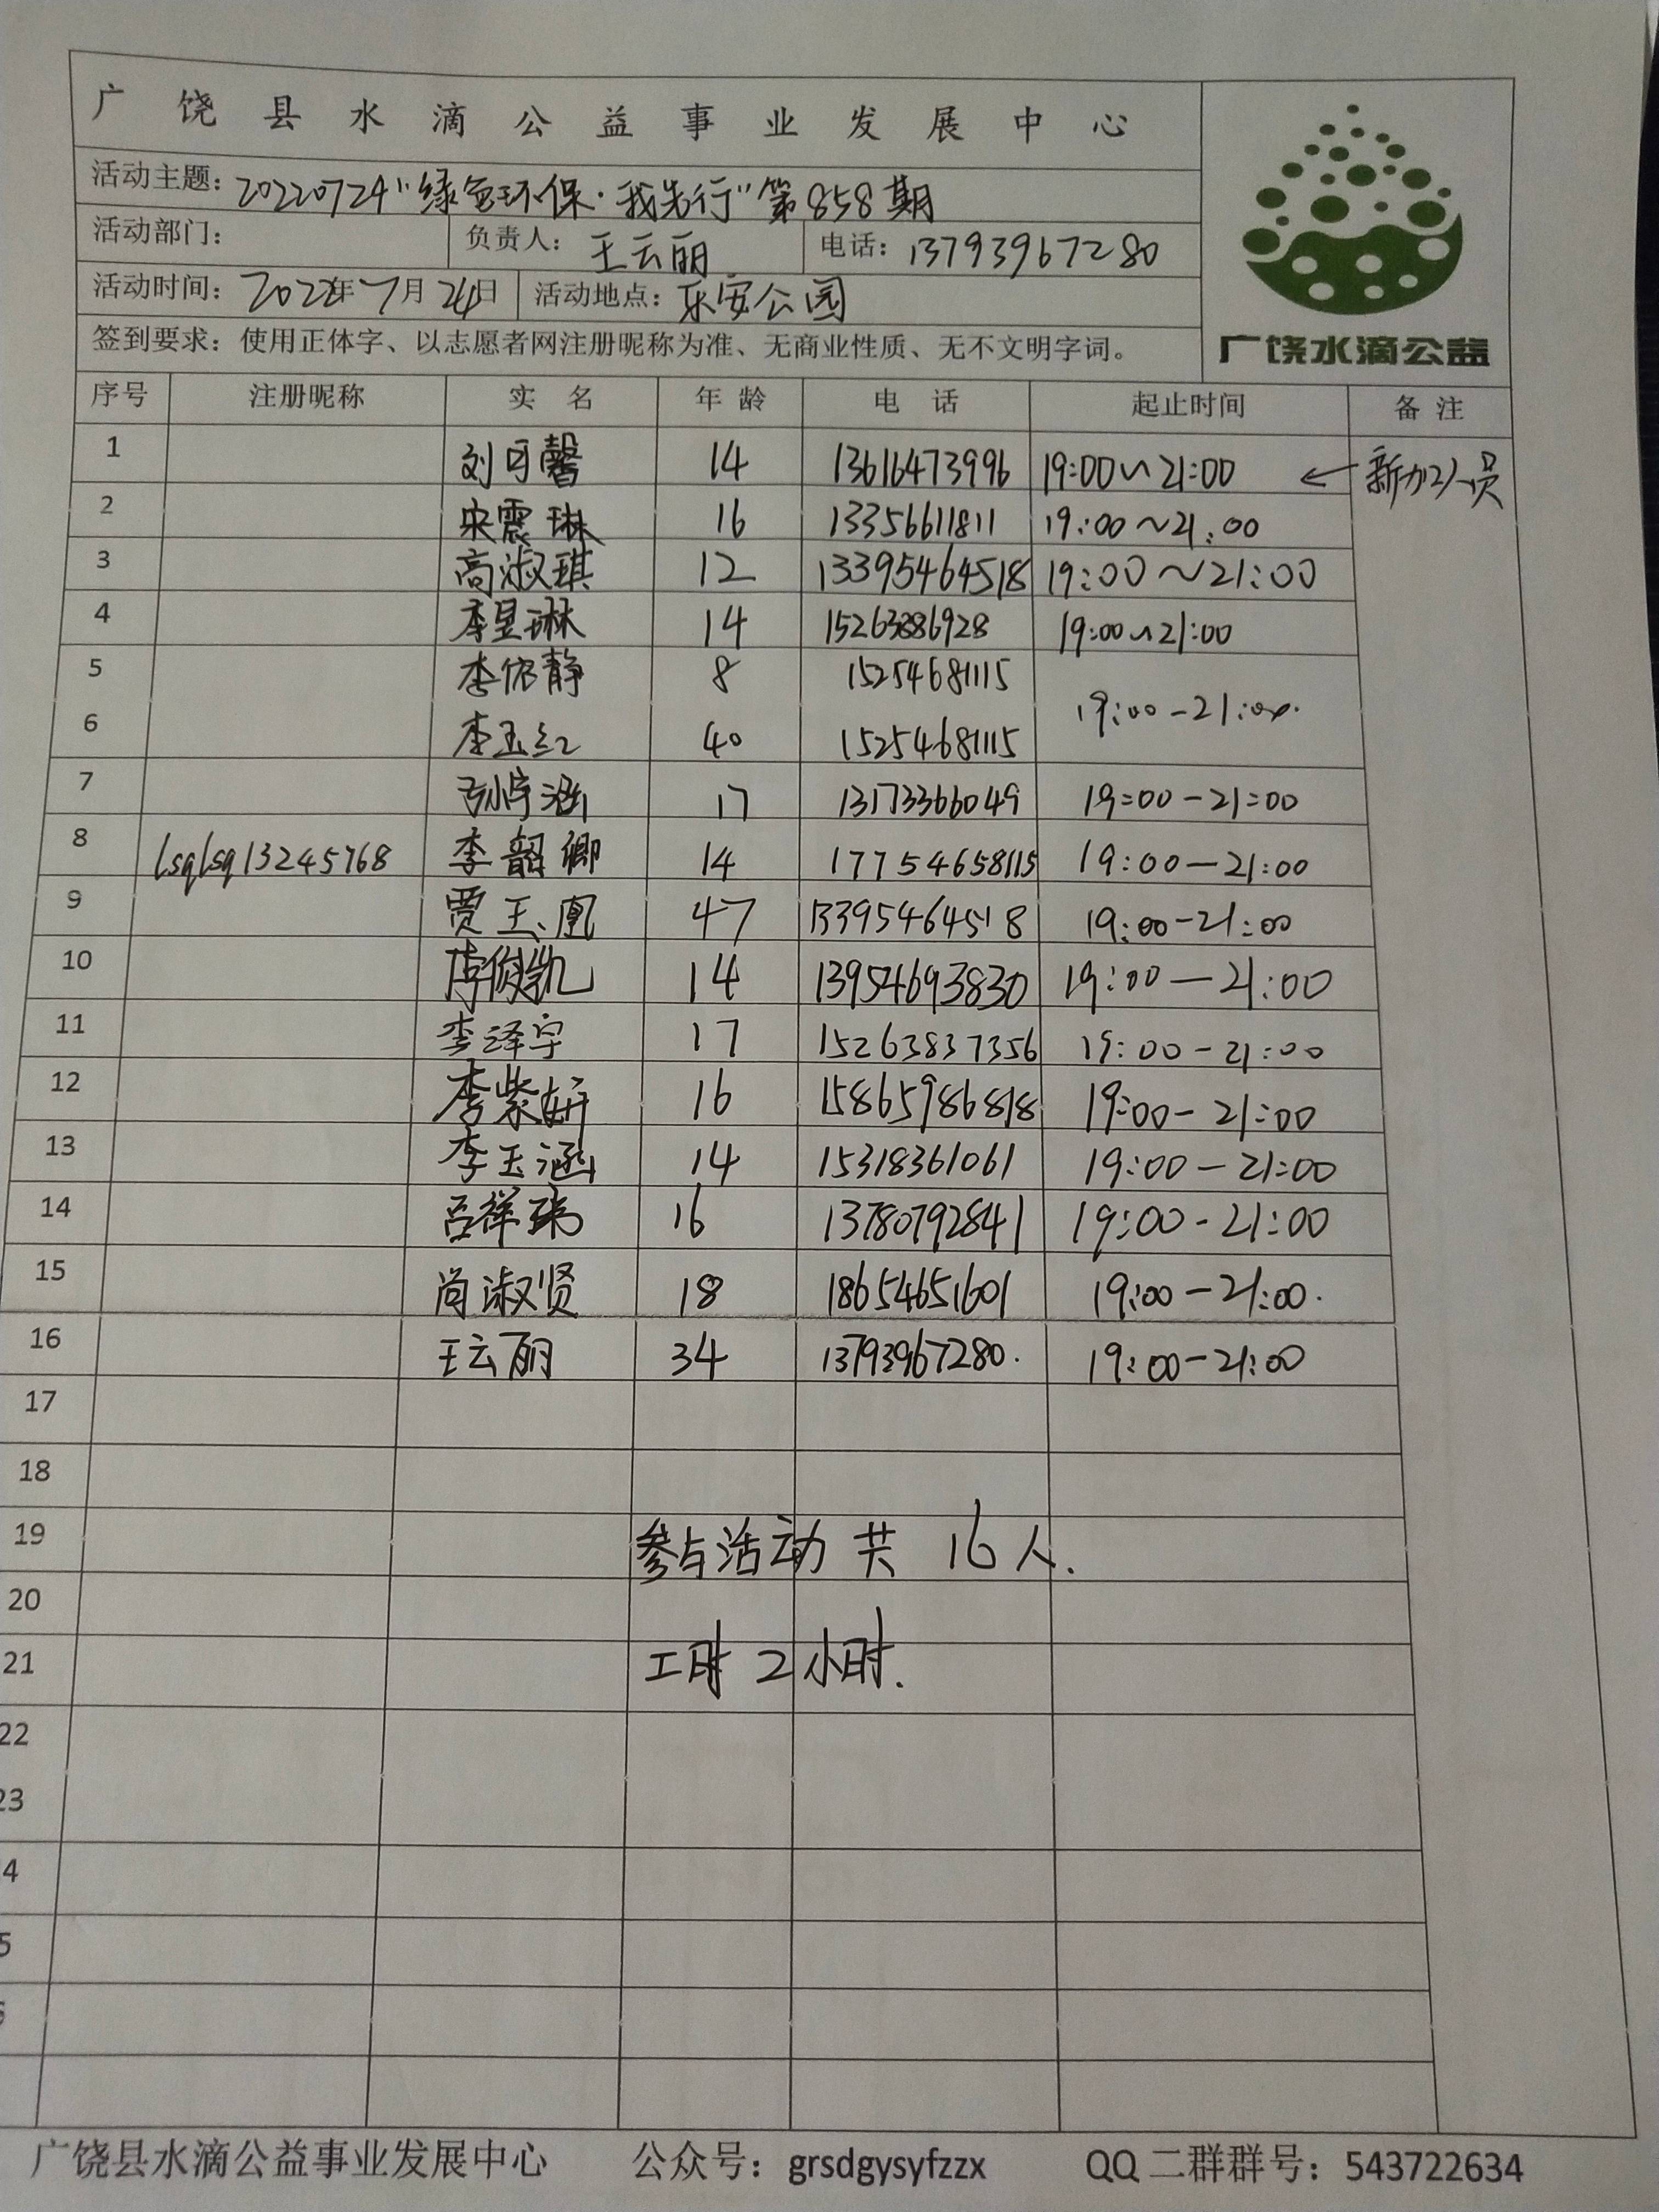 广饶县水滴公益事业发展中心
活动主题：20220724“绿色环保·我先行”第858期
活动部门： 负责人：王云丽 电话：13793967280
活动时间：2022年7月24日 活动地点：乐安公园
签到要求：使用正体字、以志愿者网注册昵称为准、无商业性质、无不文明字词。
广饶水滴公益
序号 注册昵称 实名 年龄 电话 起止时间 备注
1 刘可馨 14 13616473996 19:00~21:00 ← 新加人员
2 宋震琳 16 13356611811 19:00~21:00
3 高淑琪 12 13395464518 19:00~21:00
4 李昱琳 14 15263886928 19:00~21:00
5 李依静 8 15254681115
19:00-21:00.
6 李玉红 40 15254681115
7 孙宇涵 17 13173366049 19:00-21:00
8 lsqlsq13245768 李韶卿 14 17754658115 19:00-21:00
9 贾玉凰 47 13395464518 19:00-21:00
10 李俊凯 14 13954693830 19:00-21:00
11 李泽宇 17 15263837356 19:00-21:00
12 李紫妍 16 15865986818 19:00-21:00
13 李玉涵 14 15318361061 19:00-21:00
14 吕祥瑞 16 13780792841 19:00-21:00
15 尚淑贤 18 18654651601 19:00-21:00.
16 王云丽 34 13793967280. 19:00-21:00
17
18
19 参与活动 共 16人.
20
21 工时 2小时.
22
23
4
5
广饶县水滴公益事业发展中心 公众号：grsdgysyfzzx QQ二群群号：543722634